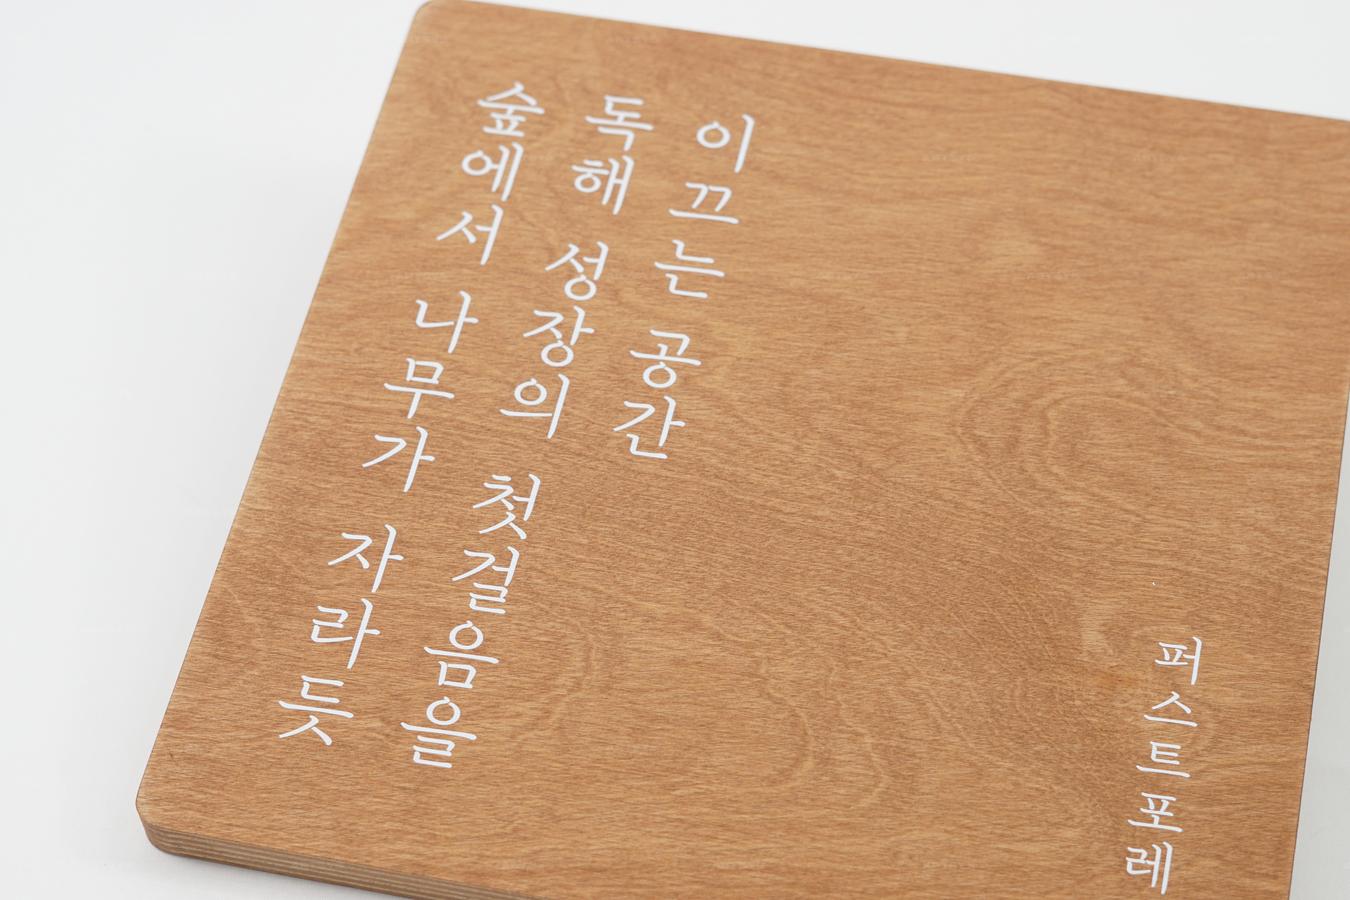 숲에서 나무가 자라듯
독해 성장의 첫걸음을
이끄는 공간
퍼스트포레